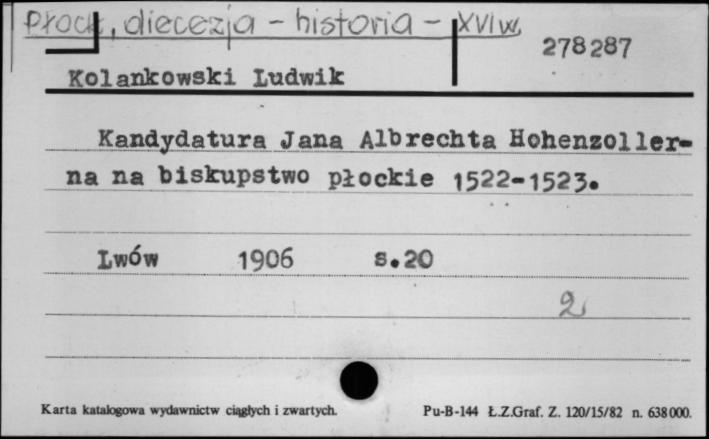 Płock, diecezja - historia - XVI w.
278287
Kolankowski Ludwik
Kandydatura Jana Albrechta Hohenzoller-
na na biskupstwo płockie 1522-1523.
Lwów 1906 s.20
2
Karta katalogowa wydawnictw ciągłych i zwartych. Pu-B-144 Ł.Z.Graf. Z. 120/15/82 n. 638000.